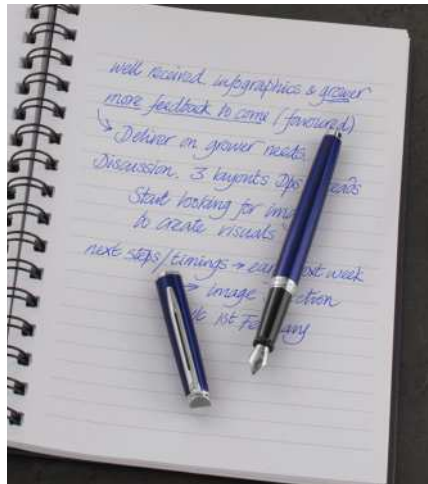 well received infographics & grower
more feedback to come (favoured)
↳ Deliver on grower needs.
Discussion. 3 layouts Dps
Start looking for
to create visuals
next steps/timings → week
→ image
1st